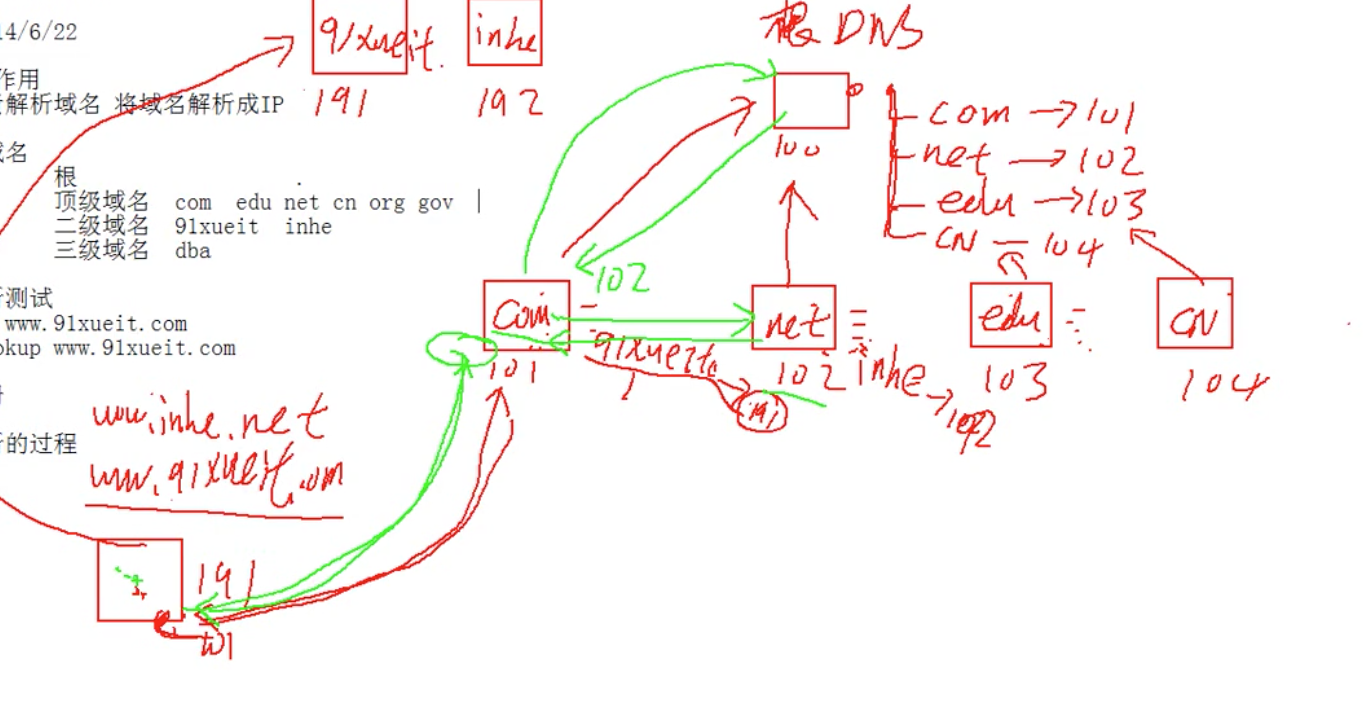 14/6/22
作用
解析域名 将域名解析成IP
域名
根
顶级域名 com edu net cn org gov
二级域名 91xueit inhe
三级域名 dba
测试
www.91xueit.com
okup www.91xueit.com
的过程
91xueit.
191
inhe
192
根DNS
100
com → 101
net → 102
edu → 103
CN — 104
102
com
101
net
102
edu
103
CN
104
91xueit
191
inhe → 192
www.inhe.net
www.91xueit.com
191
101